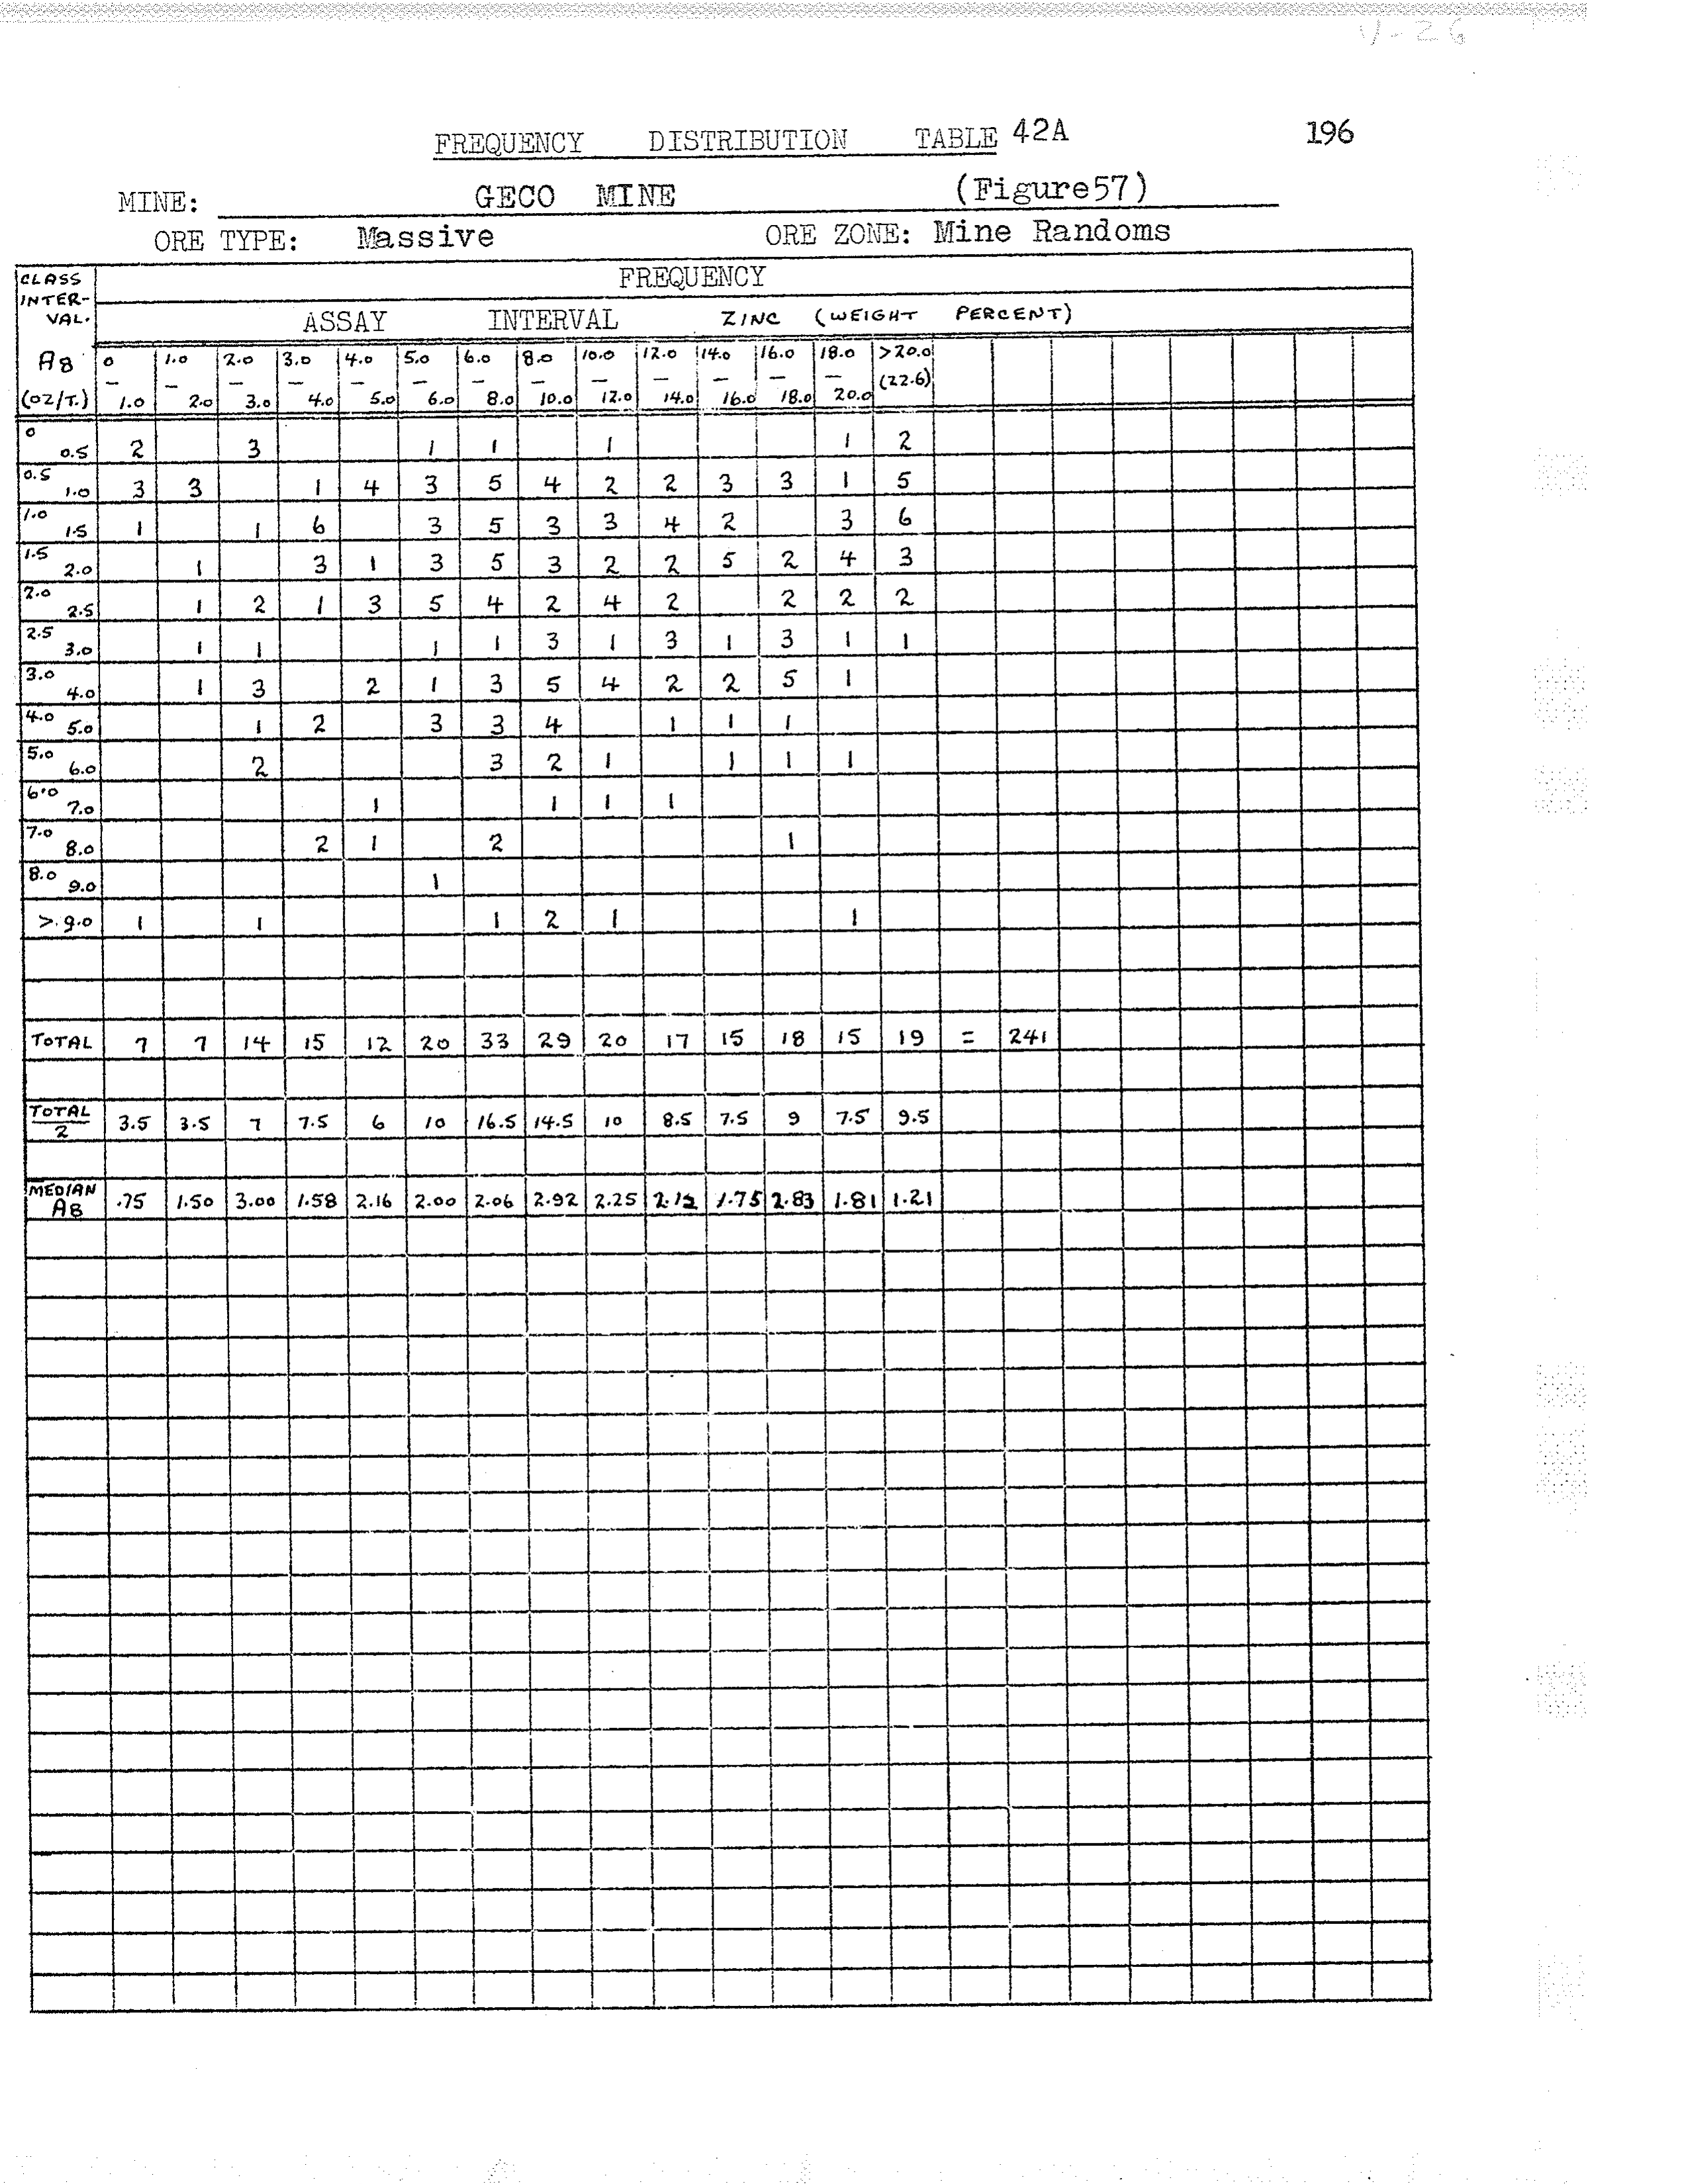 V-26
FREQUENCY DISTRIBUTION TABLE 42A 196
MINE: GECO MINE (Figure57)
ORE TYPE: Massive ORE ZONE: Mine Randoms
CLASS INTER-VAL. FREQUENCY
ASSAY INTERVAL ZINC (WEIGHT PERCENT)
Ag (OZ/T.) 0 – 1.0 1.0 – 2.0 2.0 – 3.0 3.0 – 4.0 4.0 – 5.0 5.0 – 6.0 6.0 – 8.0 8.0 – 10.0 10.0 – 12.0 12.0 – 14.0 14.0 – 16.0 16.0 – 18.0 18.0 – 20.0 >20.0 (22.6)
0 0.5 2 3 1 1 1 1 2
0.5 1.0 3 3 1 4 3 5 4 2 2 3 3 1 5
1.0 1.5 1 1 6 3 5 3 3 4 2 3 6
1.5 2.0 1 3 1 3 5 3 2 2 5 2 4 3
2.0 2.5 1 2 1 3 5 4 2 4 2 2 2 2
2.5 3.0 1 1 1 1 3 1 3 1 3 1 1
3.0 4.0 1 3 2 1 3 5 4 2 2 5 1
4.0 5.0 1 2 3 3 4 1 1 1
5.0 6.0 2 3 2 1 1 1 1
6.0 7.0 1 1 1 1
7.0 8.0 2 1 2 1
8.0 9.0 1
>9.0 1 1 1 2 1 1
TOTAL 7 7 14 15 12 20 33 29 20 17 15 18 15 19 = 241
TOTAL 2 3.5 3.5 7 7.5 6 10 16.5 14.5 10 8.5 7.5 9 7.5 9.5
MEDIAN Ag .75 1.50 3.00 1.58 2.16 2.00 2.06 2.92 2.25 2.12 1.75 2.83 1.81 1.21